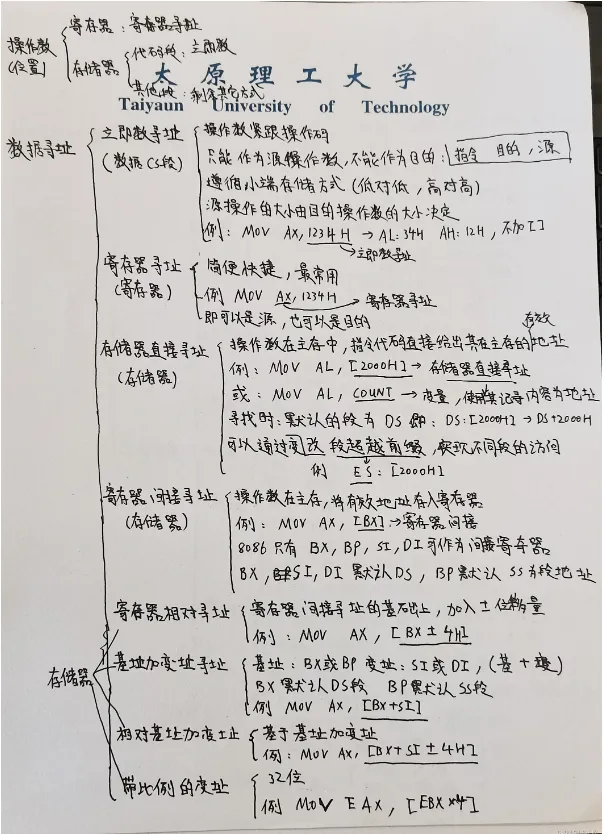 操作数
(位置)
寄存器：寄存器寻址
存储器
代码段：立即数
其他段：剩余其它方式
太原理工大学
Taiyuan University of Technology
数据寻址
立即数寻址
(数据CS段)
操作数紧跟操作码
只能作为源操作数，不能作为目的：指令 目的，源
遵循小端存储方式(低对低，高对高)
源操作的大小由目的操作数的大小决定
例：MOV AX, 1234H → AL:34H AH:12H，不加[]
→立即数寻址
寄存器寻址
(寄存器)
简便快捷，最常用
例 MOV AX, 1234H 寄存器寻址
即可以是源，也可以是目的
存储器直接寻址
(存储器)
有效
操作数在主存中，指令代码直接给出其在主存的地址
例：MOV AL, [2000H] → 存储器直接寻址
或：MOV AL, COUNT → 变量，使用其记录内容为地址
寻找时：默认的段为DS 即：DS:[2000H] → DS+2000H
可以通过更改段超越前缀，实现不同段的访问
例 ES:[2000H]
寄存器间接寻址
(存储器)
操作数在主存，将有效地址存入寄存器
例：MOV AX, [BX] → 寄存器间接
8086只有BX, BP, SI, DI可作为间接寄存器
BX, SI, DI默认DS, BP默认SS为段地址
存储器
寄存器相对寻址
寄存器间接寻址的基础上，加入±位移量
例：MOV AX, [BX±4H]
基址加变址寻址
基址：BX或BP 变址：SI或DI, (基+变)
BX默认DS段 BP默认SS段
例 MOV AX, [BX+SI]
相对基址加变址
基于基址加变址
例：MOV AX, [BX+SI±4H]
带比例的变址
32位
例 MOV EAX, [EBX×4]